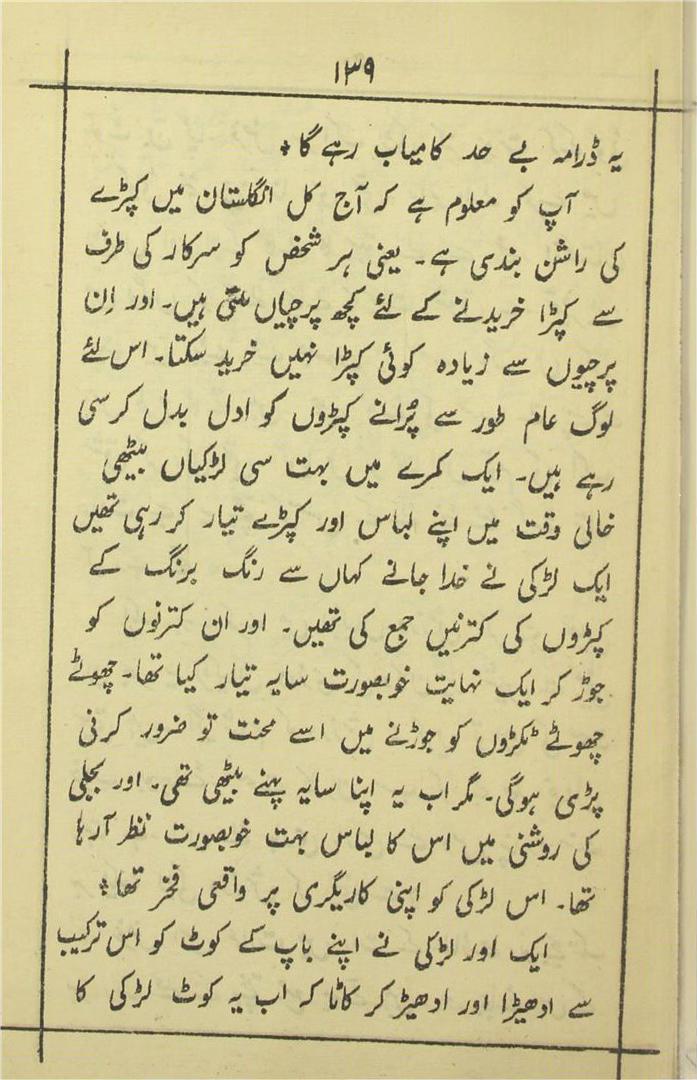 ۱۳۹
یہ ڈرامہ بے حد کامیاب رہے گا٭
آپ کو معلوم ہے کہ آج کل انگلستان میں کپڑے
کی راشن بندی ہے۔ یعنی ہر شخص کو سرکار کی طرف
سے کپڑا خریدنے کے لئے کچھ پرچیاں ملتی ہیں۔ اور اِن
پرچیوں سے زیادہ کوئی کپڑا نہیں خرید سکتا۔ اس لئے
لوگ عام طور سے پُرانے کپڑوں کو ادل بدل کر سی
رہے ہیں۔ ایک کمرے میں بہت سی لڑکیاں بیٹھی
خالی وقت میں اپنے لباس اور کپڑے تیار کر رہی تھیں
ایک لڑکی نے خدا جانے کہاں سے رنگ برنگ کے
کپڑوں کی کترنیں جمع کی تھیں۔ اور ان کترنوں کو
جوڑ کر ایک نہایت خوبصورت سایہ تیار کیا تھا۔ چھوٹے
چھوٹے ٹکڑوں کو جوڑنے میں اسے محنت تو ضرور کرنی
پڑی ہوگی۔ مگر اب یہ اپنا سایہ پہنے بیٹھی تھی۔ اور بجلی
کی روشنی میں اس کا لباس بہت خوبصورت نظر آ رہا
تھا۔ اس لڑکی کو اپنی کاریگری پر واقعی فخر تھا٭
ایک اور لڑکی نے اپنے باپ کے کوٹ کو اس ترکیب
سے ادھیڑا اور ادھیڑ کر کاٹا کہ اب یہ کوٹ لڑکی کا